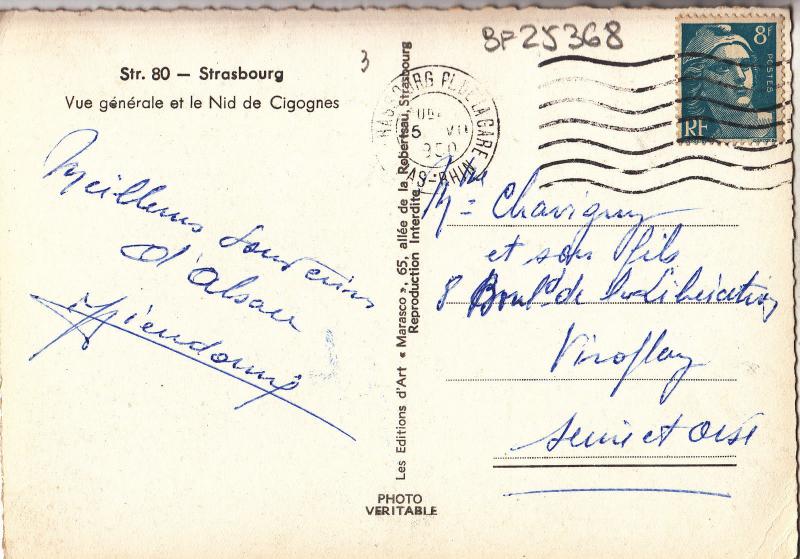 BF25368
3
8F
POSTES
RF
Str. 80 — Strasbourg
Vue générale et le Nid de Cigognes
STRASBOURG PL. DE LA GARE
BAS-RHIN
Meilleurs souvenirs
d'Alsace
Mme Chavigny
et son fils
8 Bould de la Libération
Viroflay
Seine et Oise
Les Editions d'Art « Marasco ». 65, allée de la Robertsau, Strasbourg
Reproduction Interdite
PHOTO
VERITABLE